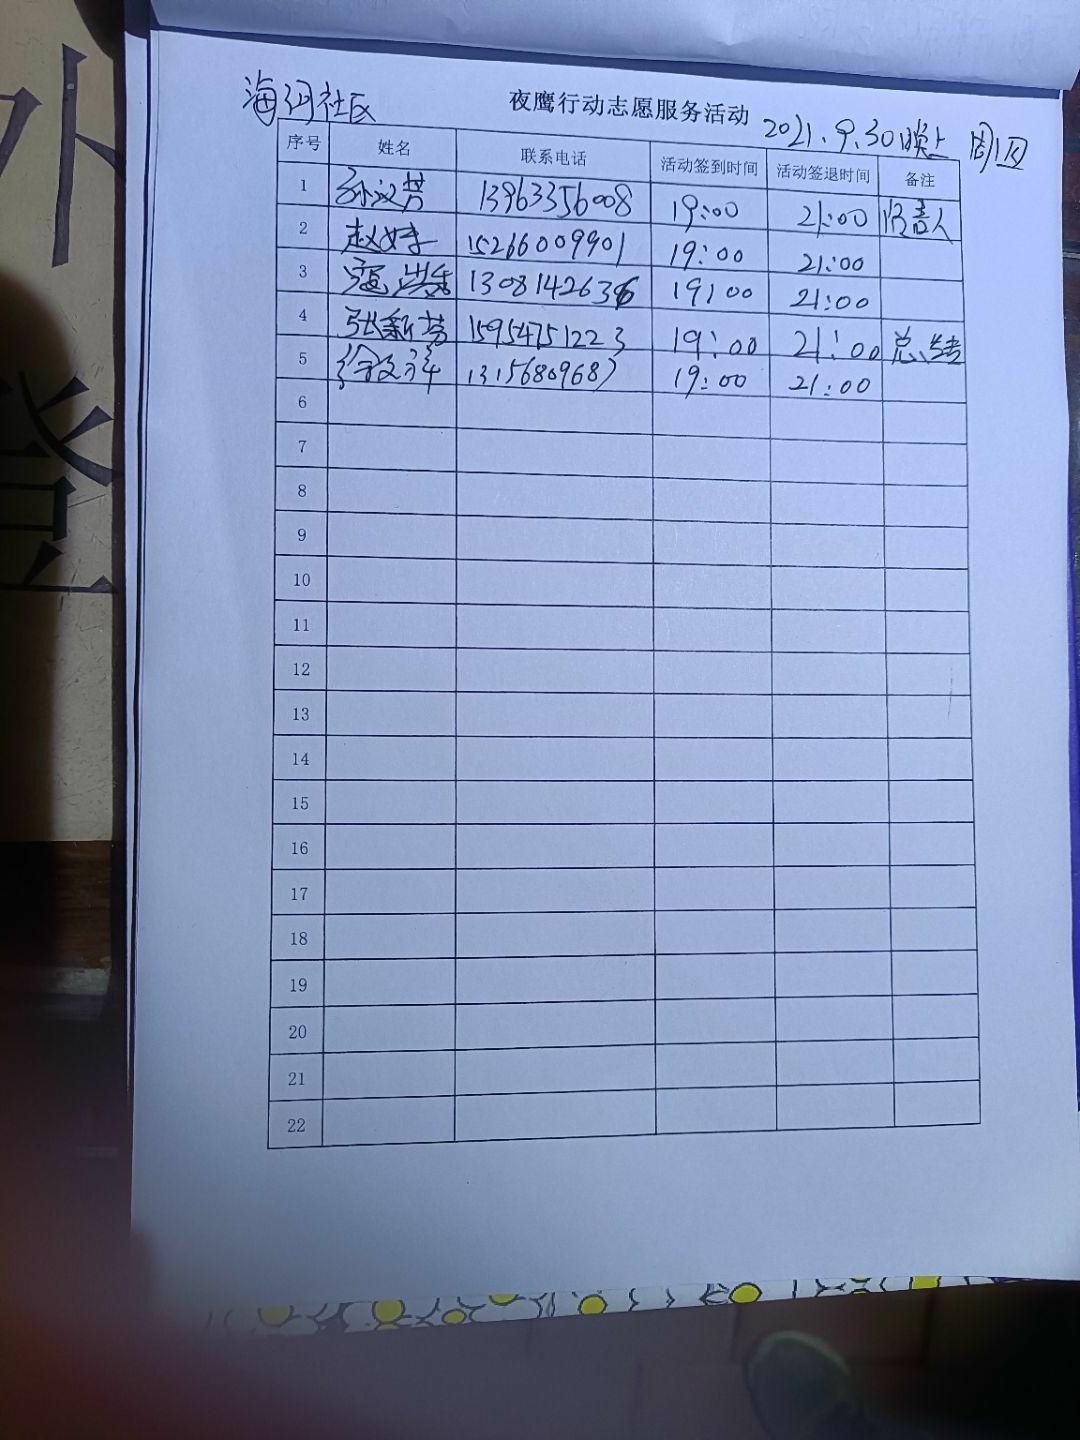 海河社区
夜鹰行动志愿服务活动
2021.9.30晚上 周四
序号 姓名 联系电话 活动签到时间 活动签退时间 备注
1 孙汉芳 13963356008 19:00 21:00 负责人
2 赵婷 15266009901 19:00 21:00
3 寇洪香 1308142636 19:00 21:00
4 张新芳 15954751223 19:00 21:00 总结
5 徐文祥 13156809687 19:00 21:00
6
7
8
9
10
11
12
13
14
15
16
17
18
19
20
21
22
外